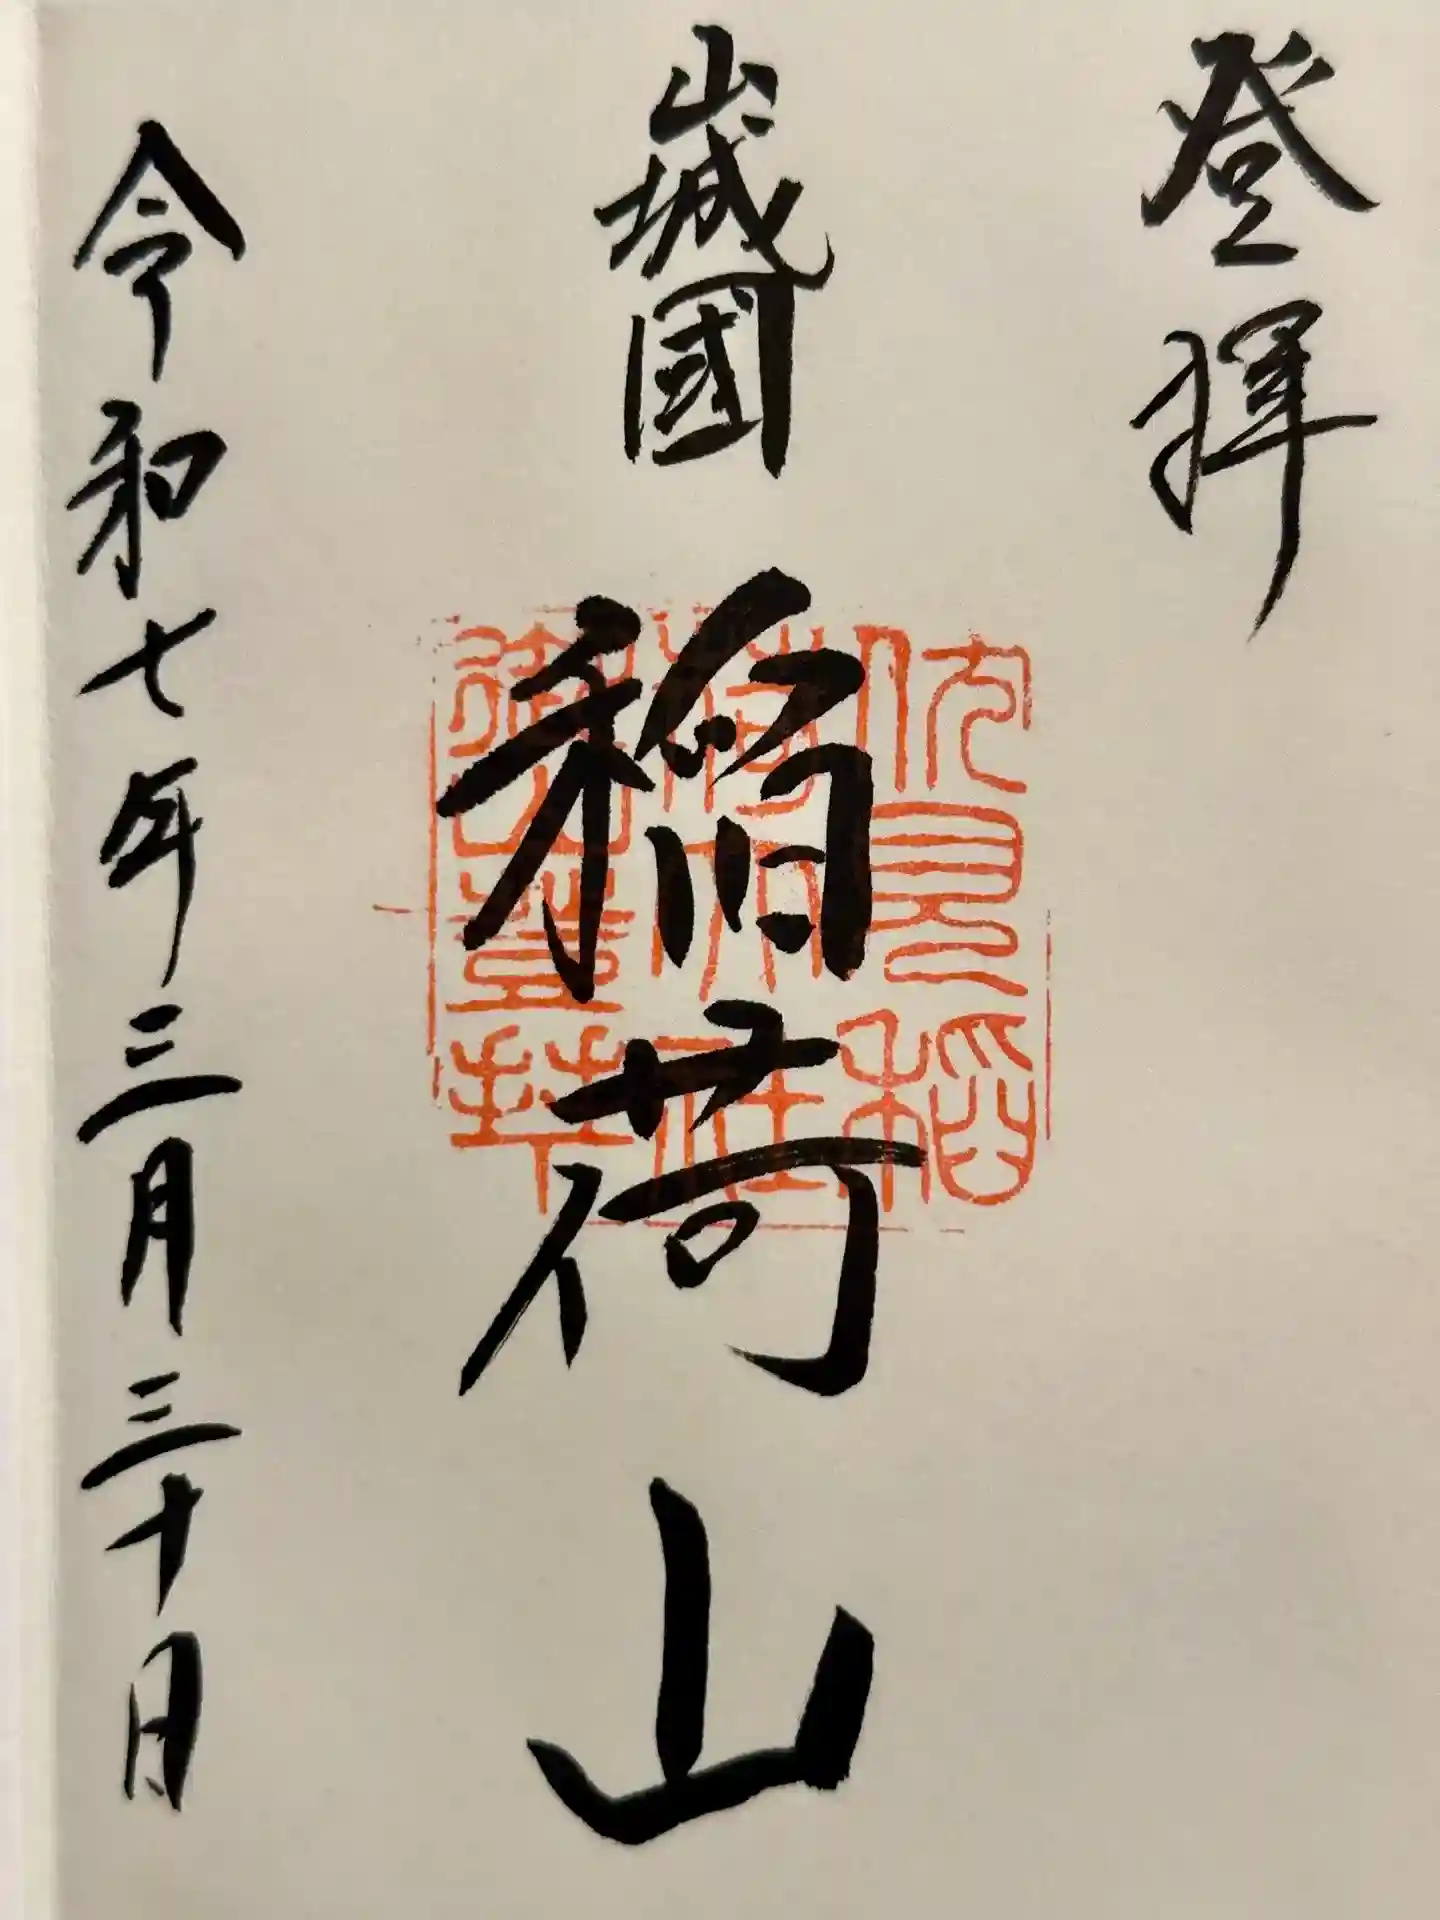 登拝
山城國
稲荷山
伏見稲
荷大社
御山登拝
令和七年三月三十日